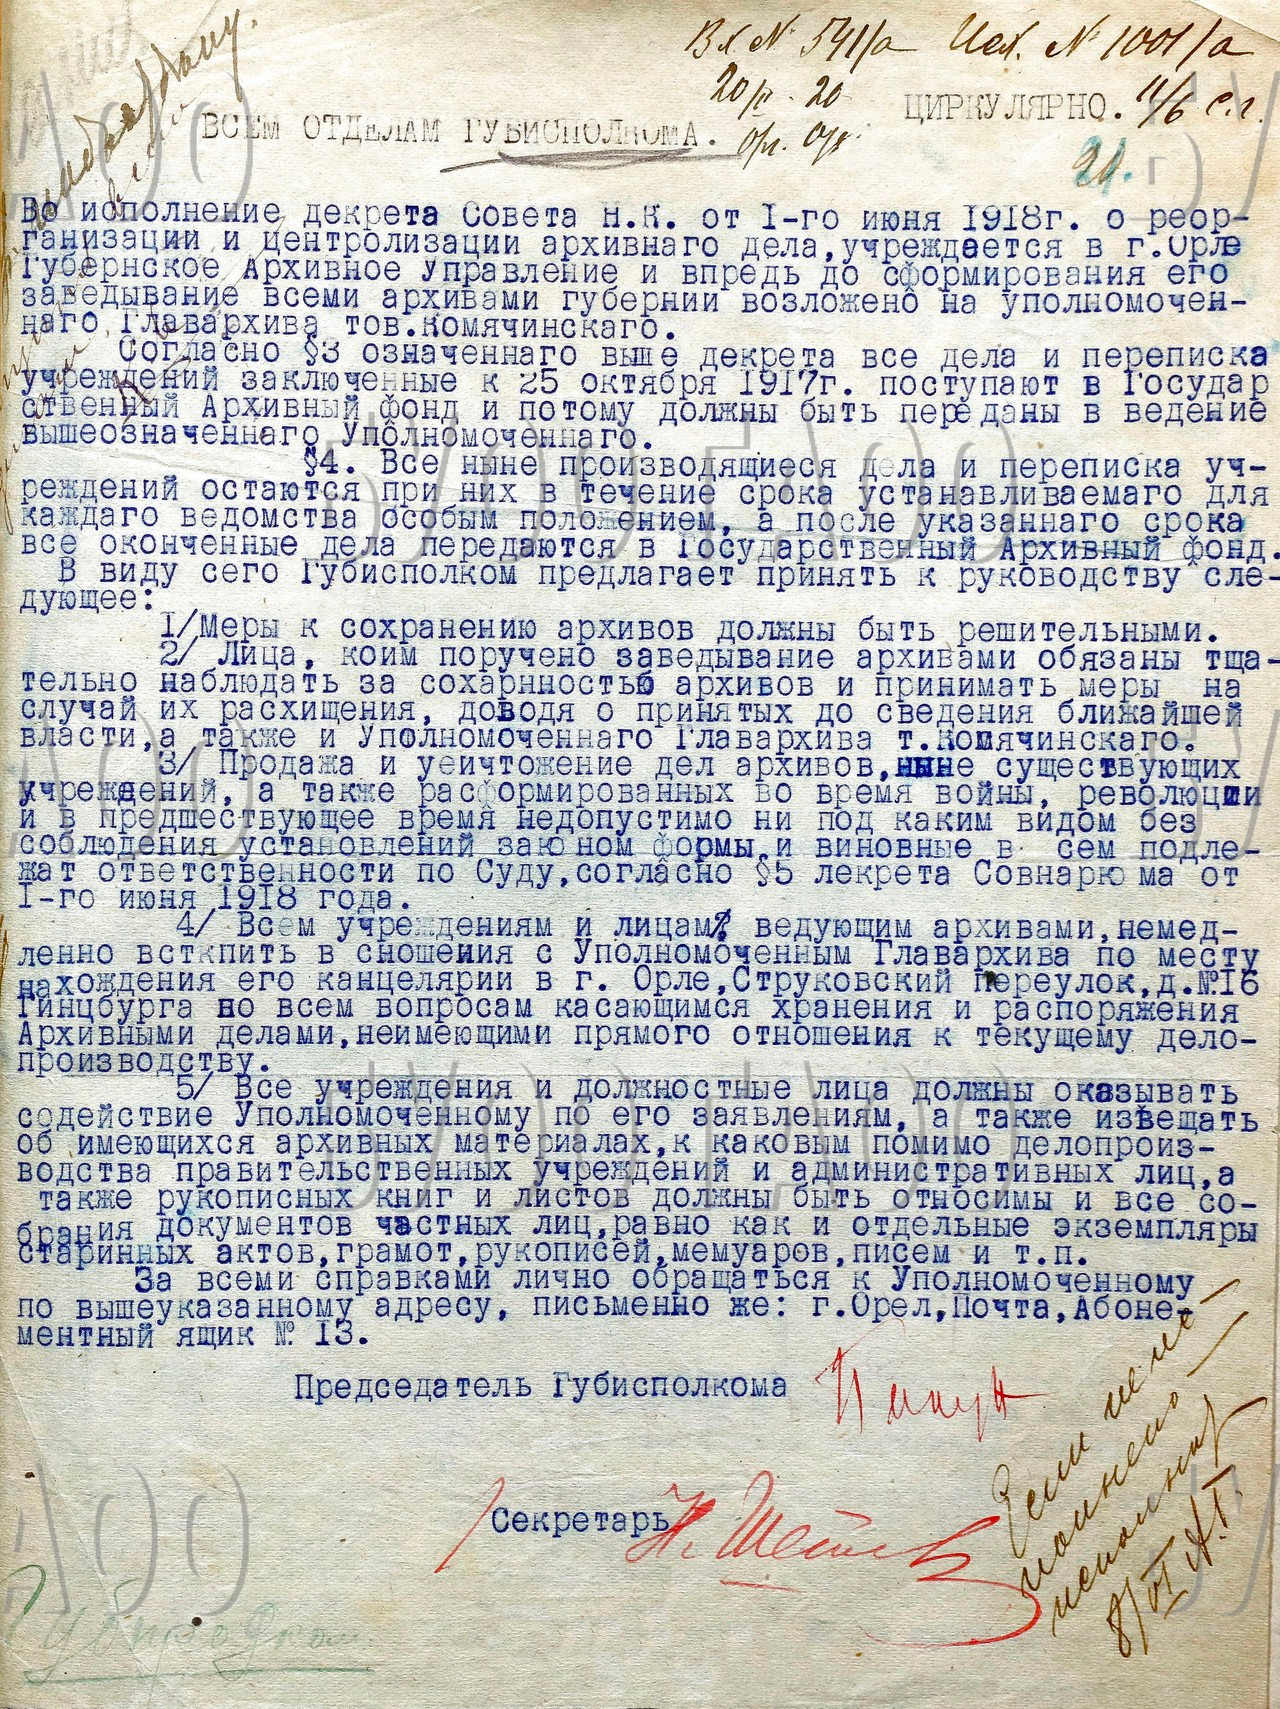 Вх № 541/а Исх. № 1001/а
20/II - 20 11/6 с.г.
ЦИРКУЛЯРНО.
ВСЕМ ОТДЕЛАМ ГУБИСПОЛКОМА.
21.
Во исполнение декрета Совета Н.К. от I-го июня 1918г. о реор-
ганизации и центролизации архивнаго дела,учреждается в г.Орле
Губернское Архивное Управление и впредь до сформирования его
заведывание всеми архивами губернии возложено на уполномочен-
наго Главархива тов.Комячинскаго.
Согласно §3 означеннаго выше декрета все дела и переписка
учреждений заключенные к 25 октября 1917г. поступают в Государ
ственный Архивный фонд и потому должны быть переданы в ведение
вышеозначеннаго Уполномоченнаго.
§4. Все ныне производящиеся дела и переписка уч-
реждений остаются при них в течение срока устанавливаемаго для
каждаго ведомства особым положением, а после указаннаго срока
все оконченные дела передаются в Государственный Архивный фонд.
В виду сего Губисполком предлагает принять к руководству сле-
дующее:
1/Меры к сохранению архивов должны быть решительными.
2/ Лица, коим поручено заведывание архивами обязаны тща-
тельно наблюдать за сохарнностью архивов и принимать меры на
случай их расхищения, доводя о принятых до сведения ближайшей
власти,а также и Уполномоченнаго Главархива т.Комячинскаго.
3/ Продажа и уеичтожение дел архивов,ныне существующих
учреждений, а также расформированных во время войны, революции
и в предшествующее время недопустимо ни под каким видом без
соблюдения установлений законом формы,и виновные в сем подле-
жат ответственности по Суду,согласно §5 лекрета Совнаркома от
I-го июня 1918 года.
4/ Всем учреждениям и лицам, ведующим архивами,немед-
ленно всткпить в сношения с Уполномоченным Главархива по месту
нахождения его канцелярии в г. Орле,Струковский Переулок,д.№16
Гинцбурга по всем вопросам касающимся хранения и распоряжения
Архивными делами,неимеющими прямого отношения к текущему дело-
производству.
5/ Все учреждения и должностные лица должны оказывать
содействие Уполномоченному по его заявлениям, а также извещать
об имеющихся архивных материалах,к каковым помимо делопроиз-
водства правительственных учреждений и административных лиц,а
также рукописных книг и листов должны быть относимы и все со-
брания документов частных лиц,равно как и отдельные экземпляры
старинных актов,грамот,рукописей,мемуаров,писем и т.п.
За всеми справками лично обращаться к Уполномоченному
по вышеуказанному адресу, письменно же: г.Орел,Почта,Абоне-
ментный ящик № 13.
Председатель Губисполкома
Секретарь
Если не
исполнено
исполнит
8/VI
Губпродком.